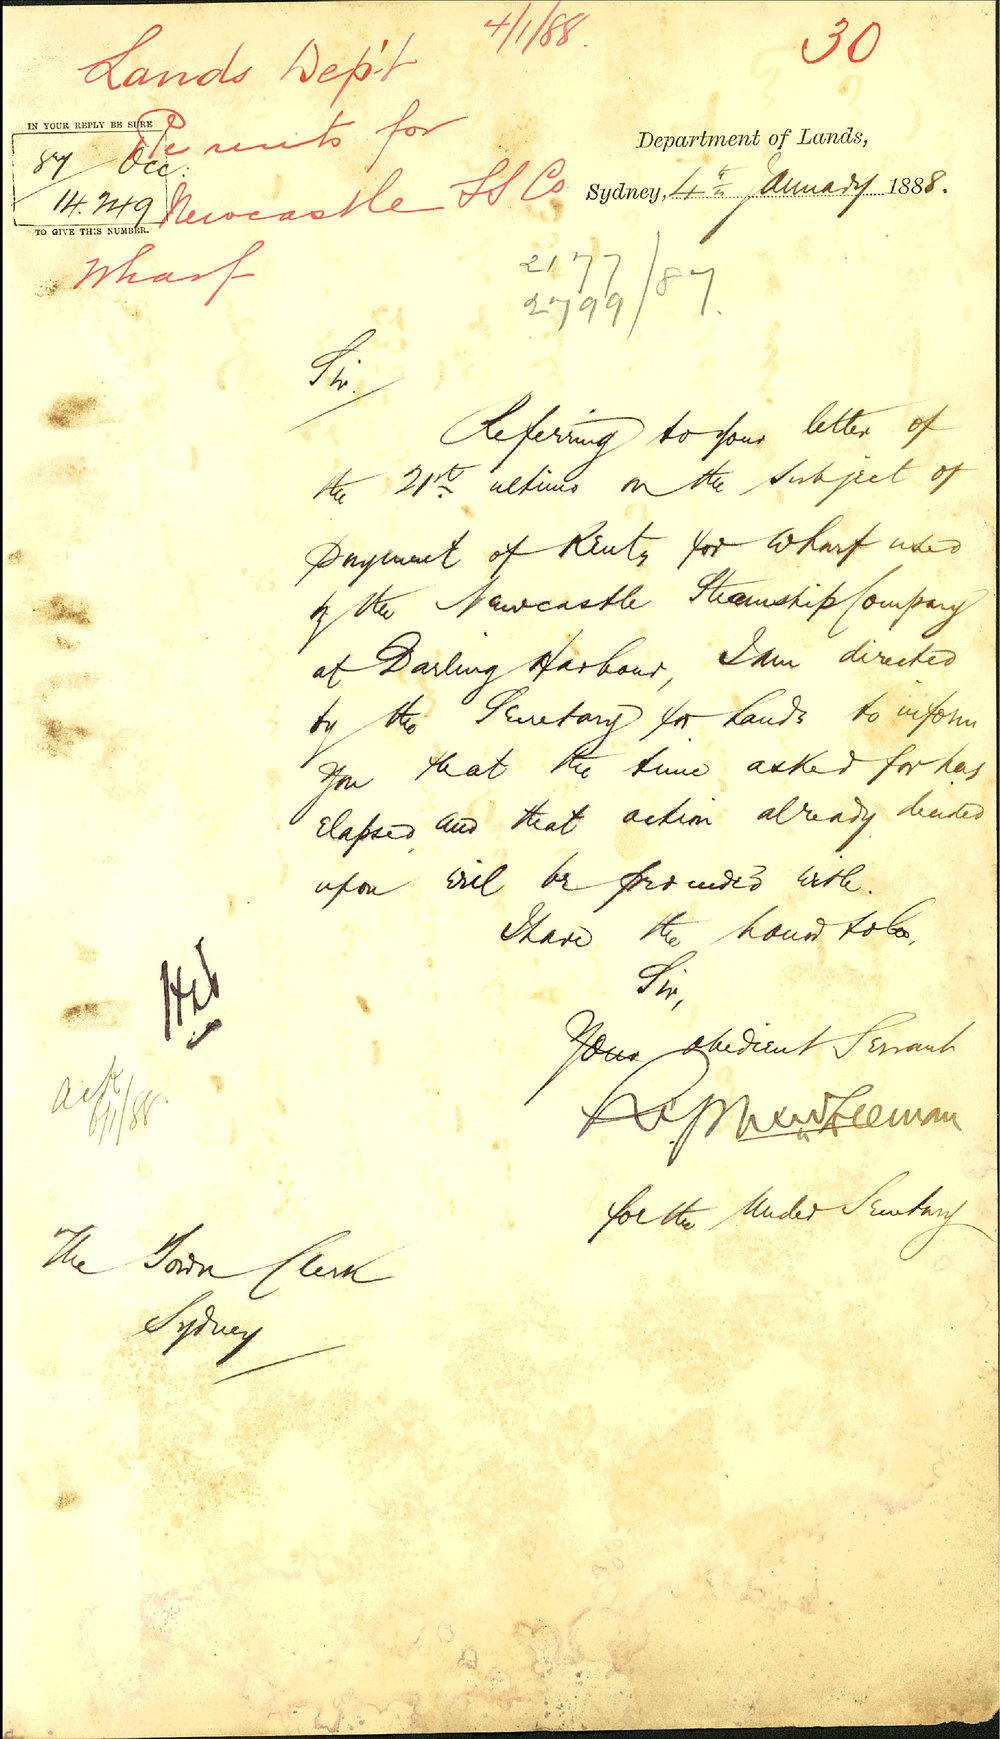 4/1/88.
30
Lands Dep't
Re rents for
Newcastle SS Co
Wharf
IN YOUR REPLY BE SURE
87 Occ.
14.249
TO GIVE THIS NUMBER.
Department of Lands,
Sydney, 4th January 1888.
2177
2799/87.
Sir,
Referring to your letter of
the 21st ultimo on the subject of
payment of Rents for Wharf used
by the Newcastle Steamship Company
at Darling Harbour, I am directed
by the Secretary for Lands to inform
you that the time asked for has
elapsed, and that action already decided
upon will be proceeded with.
I have the honor to be,
Sir,
Your obedient Servant
for the Under Secretary
ack
6/1/88.
The Town Clerk
Sydney